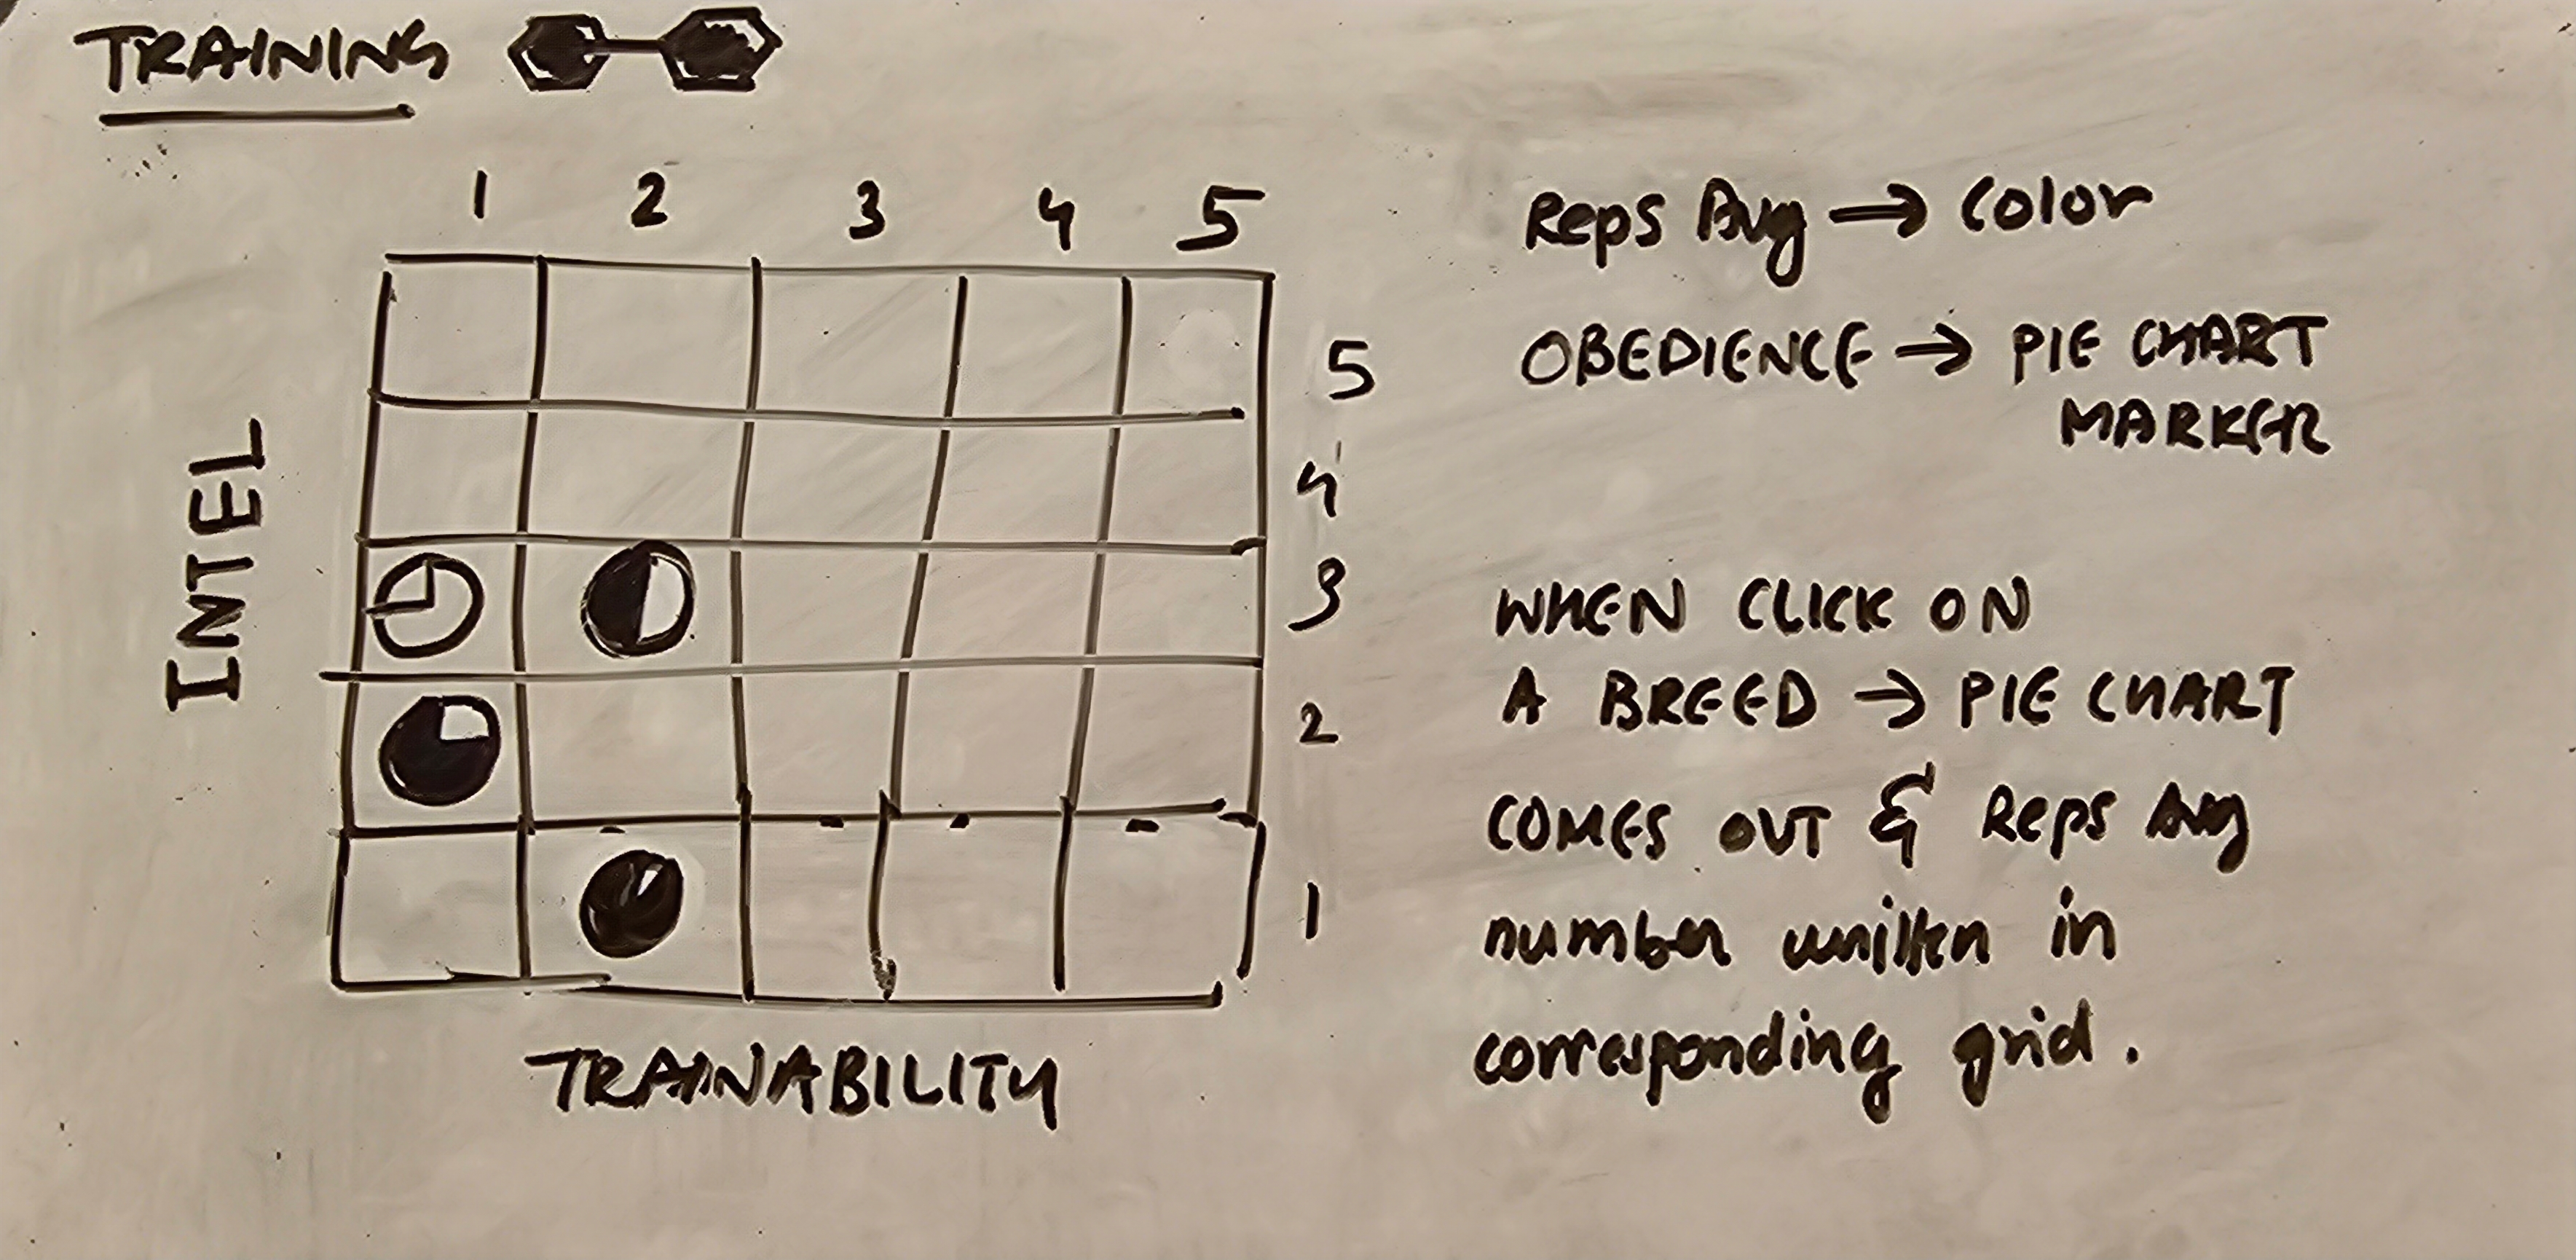 TRAINING
1 2 3 4 5
5
4
3
2
1
INTEL
TRAINABILITY
Reps Avg → Color
OBEDIENCE → PIE CHART
MARKER
WHEN CLICK ON
A BREED → PIE CHART
COMES OUT & Reps Avg
number written in
corresponding grid.